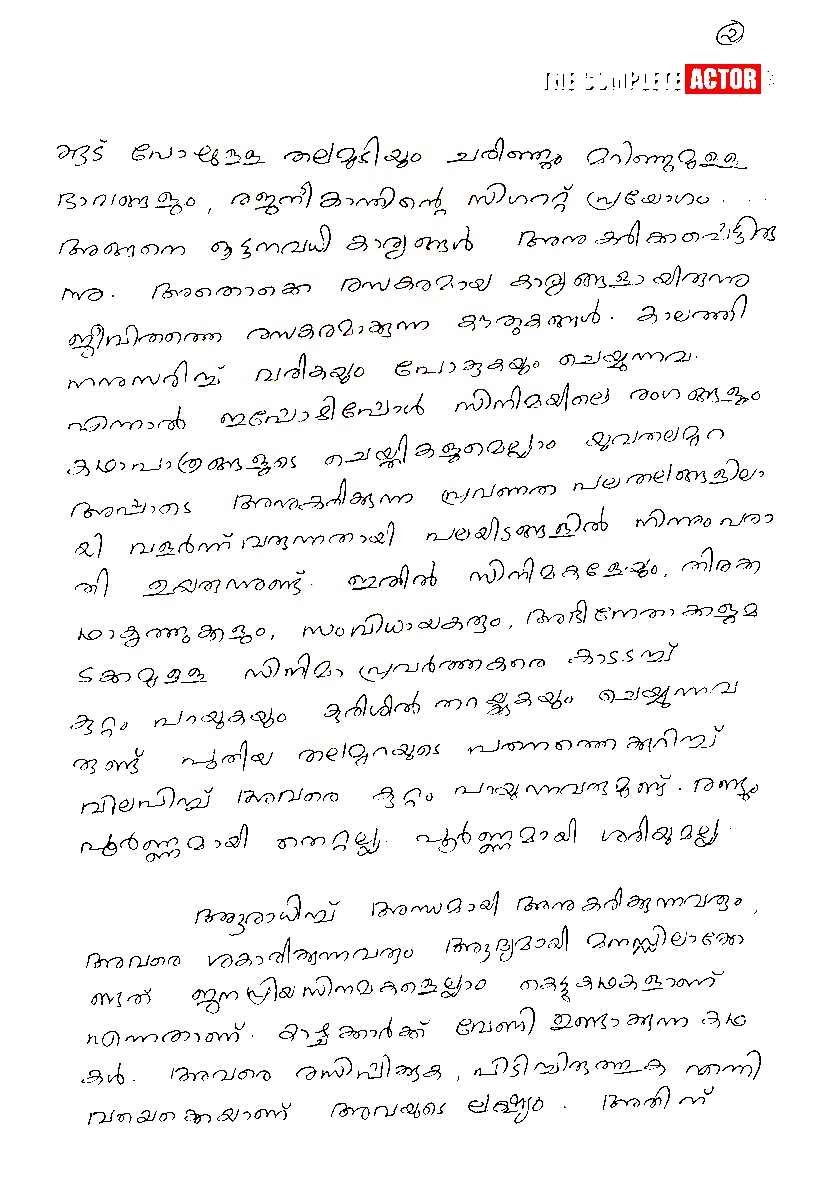 ②
THE COMPLETE ACTOR
കൂട് പോലുള്ള തലമുടിയും ചരിഞ്ഞും മറിഞ്ഞുമുള്ള
ഭാവങ്ങളും, രജനീകാന്തിന്റെ സിഗററ്റ് പ്രയോഗം . . .
അങ്ങനെ ഒട്ടനവധി കാര്യങ്ങൾ അനുകരിക്കപ്പെട്ടിരു
ന്നു. അതൊക്കെ രസകരമായ കാര്യങ്ങളായിരുന്നു
ജീവിതത്തെ രസകരമാക്കുന്ന കൗതുകങ്ങൾ. കാലത്തി
നനുസരിച്ച് വരികയും പോകുകയും ചെയ്യുന്നവ.
എന്നാൽ ഇപ്പോൾ സിനിമയിലെ രംഗങ്ങളും
കഥാപാത്രങ്ങളുടെ ചെയ്തികളുമെല്ലാം യുവതലമുറ
അപ്പാടെ അനുകരിക്കുന്ന പ്രവണത പലതലങ്ങളിലാ
യി വളർന്ന് വരുന്നതായി പലയിടങ്ങളിൽ നിന്നും പരാ
തി ഉയരുന്നുണ്ട്. ഇതിൽ സിനിമകളേയും, തിരക്ക
ഥാകൃത്തുക്കളും, സംവിധായകരും, അഭിനേതാക്കളുമ
ടക്കമുള്ള സിനിമാ പ്രവർത്തകരെ കാടടച്ച്
കുറ്റം പറയുകയും കുരിശിൽ തറയ്ക്കുകയും ചെയ്യുന്നവ
രുണ്ട് പുതിയ തലമുറയുടെ പതനത്തെക്കുറിച്ച്
വിലപിച്ച് അവരെ കുറ്റം പറയുന്നവരുമുണ്ട്. രണ്ടും
പൂർണ്ണമായി തെറ്റല്ല. പൂർണ്ണമായി ശരിയുമല്ല.
ആരാധിച്ച് അന്ധമായി അനുകരിക്കുന്നവരും,
അവരെ ശകാരിക്കുന്നവരും ആദ്യമായി മനസ്സിലാക്കേ
ണ്ടത് ജനപ്രിയസിനിമകളെല്ലാം കെട്ടുകഥകളാണ്
എന്നതാണ്. കാഴ്ച്ചക്കാർക്ക് വേണ്ടി ഉണ്ടാക്കുന്ന കഥ
കൾ. അവരെ രസിപ്പിക്കുക, പിടിച്ചിരുത്തുക എന്നി
വയൊക്കെയാണ് അവയുടെ ലക്ഷ്യം. അതിന്